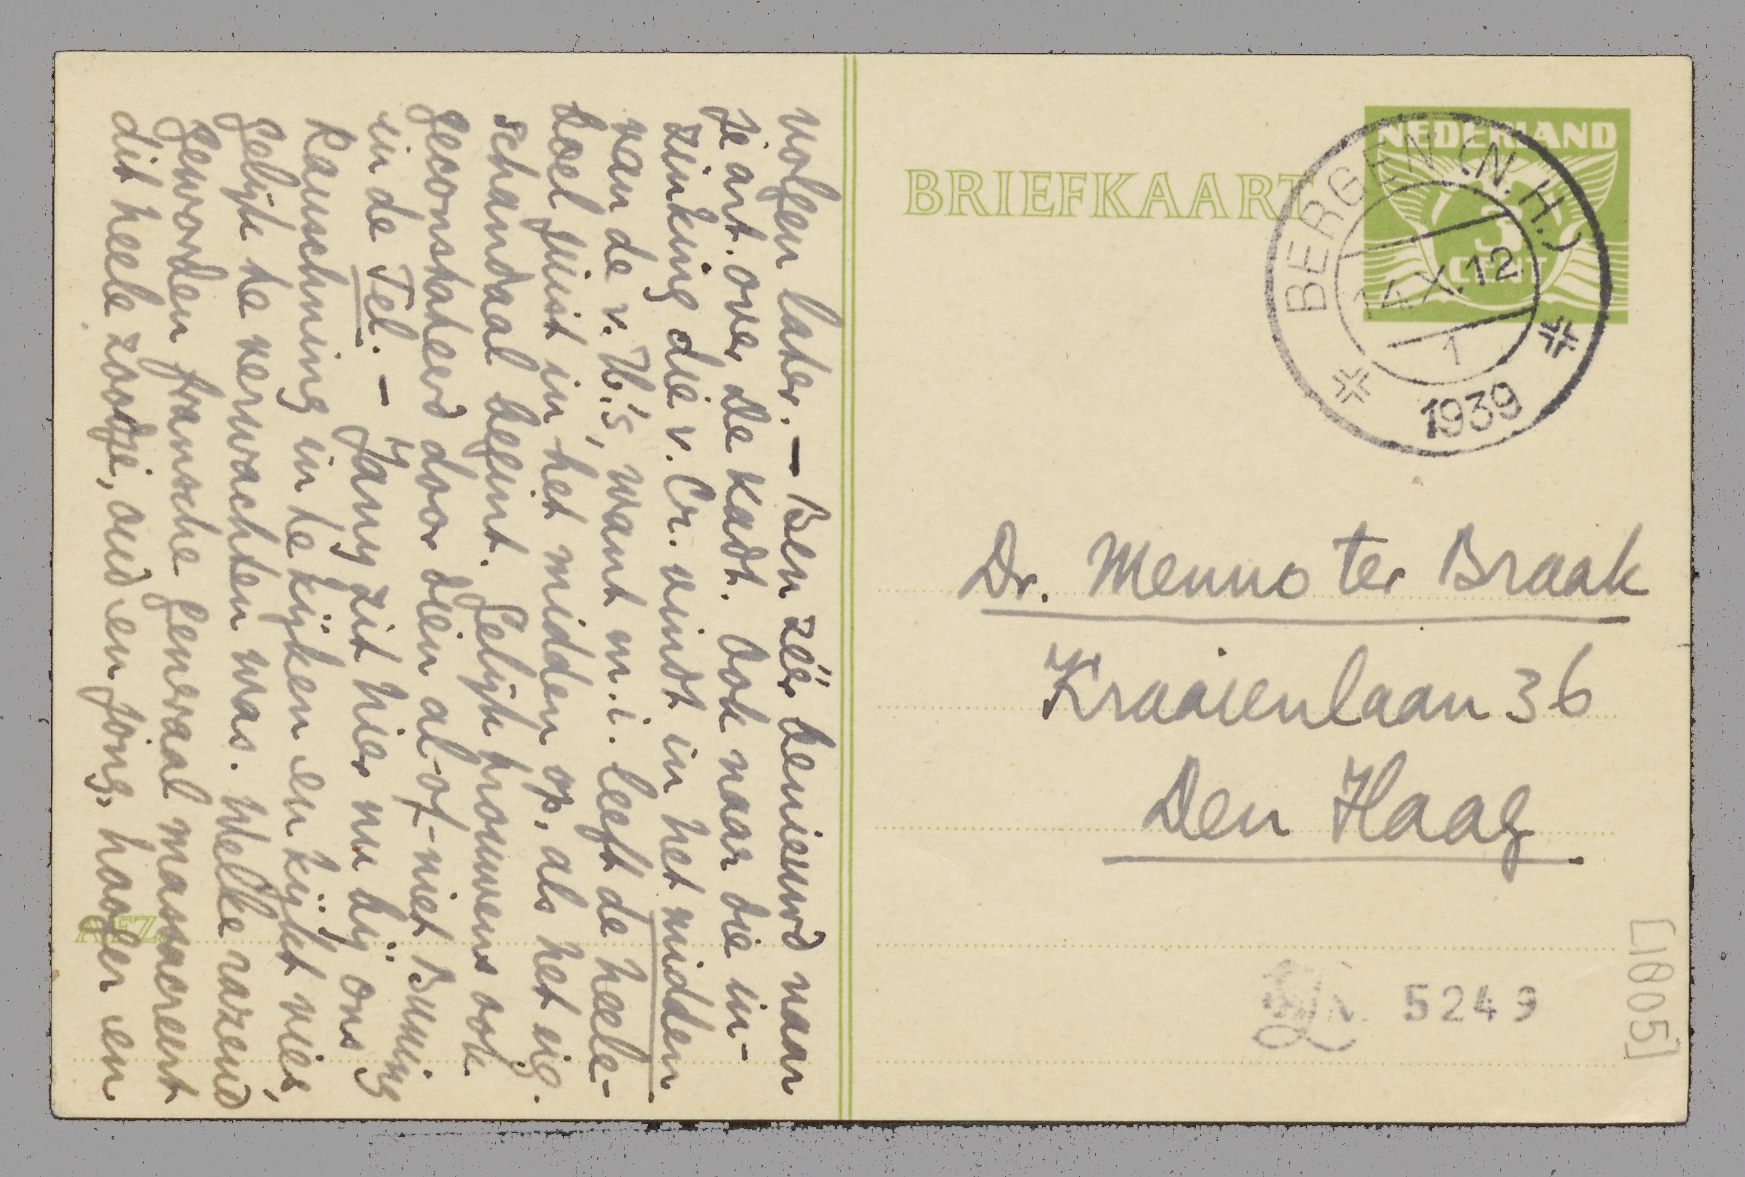 volgen later. — Ben zéér benieuwd naar
je art. over de Kadt. Ook naar die in-
zinking die v. Cr. vindt in het midden
van de v. H.'s, want m.i. leeft de heele
boel juist in het midden op, als het eig.
schandaal begint. Gelijk trouwens ook
geconstateerd door dien al-of-niet Buning
in de Tel. — Jany zit hier nu bij ons
Rauschning in te kijken en kijkt vies,
gelijk te verwachten was. Welke razend
geworden fransche generaal massacreert
dit heele zoodje, oud en jong, hooger en
AFZ.
BRIEFKAART
NEDERLAND
3
CENT
BERGEN (N.H.)
14.X.12
1
1939
Dr. Menno ter Braak
Kraaienlaan 36
Den Haag
5249
[1005]